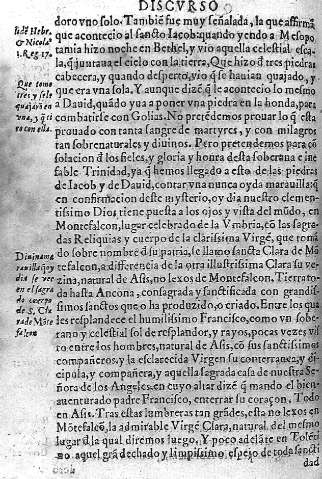 DISCVRSO
doro vno solo. Tambiē fue muy señalada, la que affirmã
que acontecio al sancto Iacob: quando yendo a Mesopo
tamia hizo noche en Bethel, y vio aquella celestial esca
la, q̃ juntaua el cielo con la tierra, Que hizo d̃ tres piedras
cabecera, y quando desperto, vio q̃ se hauian quajado, y
que era vna sola. Y aunque dizē, q̃ le acontecio lo mesmo
a Dauid, quãdo yua a poner vna piedra en la honda, para
combatirse con Golias. No pretēdemos prouar lo q̃ esta
prouado con tanta sangre de martyres, y con milagros
tan sobrenaturales y diuinos. Pero pretendemos para cō
solacion d̃ los fieles, y gloria y honra desta soberana e ine
fable Trinidad, ya q̃ hemos llegado a esto de las piedras
de Iacob y de Dauid, contar vna nunca oyda marauilla: q̃
en confirmacion deste mysterio, oy dia nuestro clemen
tissimo Dios tiene puesta a los ojos y vista del mũdo, en
Mōtefalcon, lugar celebrado de la Vmbria, cō las sagra
das Reliquias y cuerpo de la clarissima Virgē, que toma
do sobre nombre d̃ su patria, se llamo sancta Clara de Mō
tefalcon, a differencia de la otra illustrissima Clara su ve
zina, natural de Asis, no lexos de Mōtefalcon. Tierra to
da hasta Ancona, consagrada y sanctificada con grandis
simos sanctos que o ha produzido, o criado. Entre los qua
les resplandece el humilissimo Francisco, como vn sobe-
rano y celestial sol de resplandor, y rayos, pocas vezes vi
sto entre los hombres, natural de Asis, cō sus sanctissimos
compañeros: y la esclarecida Virgen su conterranea, y di
cipula, y compañera, y aquella sagrada casa de nuestra Se
ñora de los Angeles, en cuyo altar dizē q̃ mando el bien-
auenturado padre Francisco, enterrar su coraçon. Todo
en Asis. Tras estas lumbreras tan grādes, esta no lexos en
Mōtefalcō, la admirable Virgē Clara, natural del mesmo
lugar d̃ la qual diremos luego, Y poco adelāte en Tolēti
no aquel grā dechado y limpissimo espejo de toda sancti
dad
Hebr.
& Nicola°
1. Reg. 17.
Que tomo
tres y se le
quajarō en
vna, y q̃ ti
ro con ella.
en el sagra
do cuerpo
de S. Cla
ra de Mōte
falcon